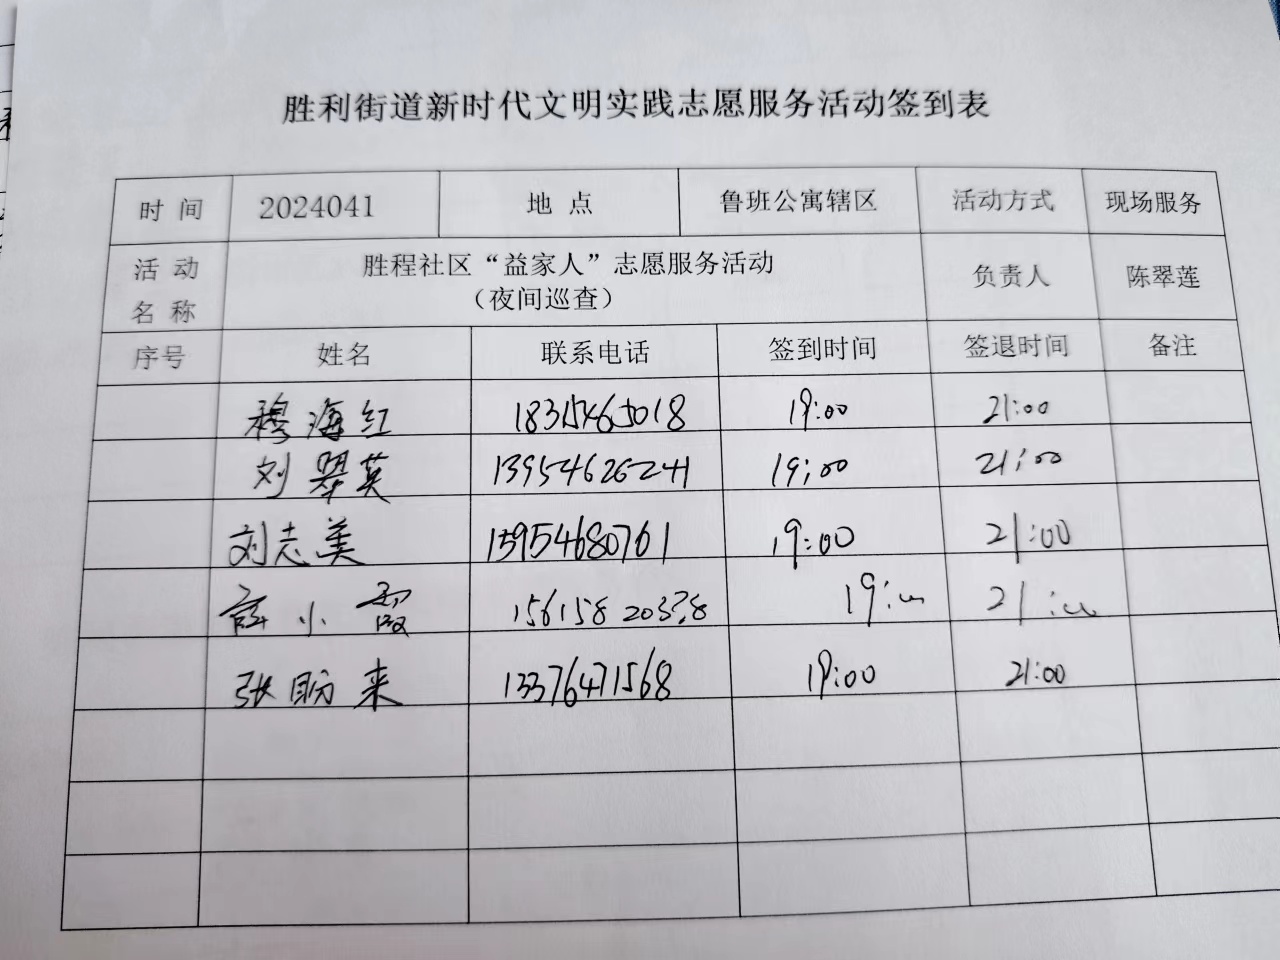 胜利街道新时代文明实践志愿服务活动签到表
时 间 2024041 地 点 鲁班公寓辖区 活动方式 现场服务
活 动 名 称 胜程社区“益家人”志愿服务活动 （夜间巡查） 负责人 陈翠莲
序号 姓名 联系电话 签到时间 签退时间 备注
穆海红 18315465018 19:00 21:00
刘翠英 13954626241 19:00 21:00
刘志美 15954680761 19:00 21:00
薛小霞 19:00 21:00
张盼来 13376471568 19:00 21:00